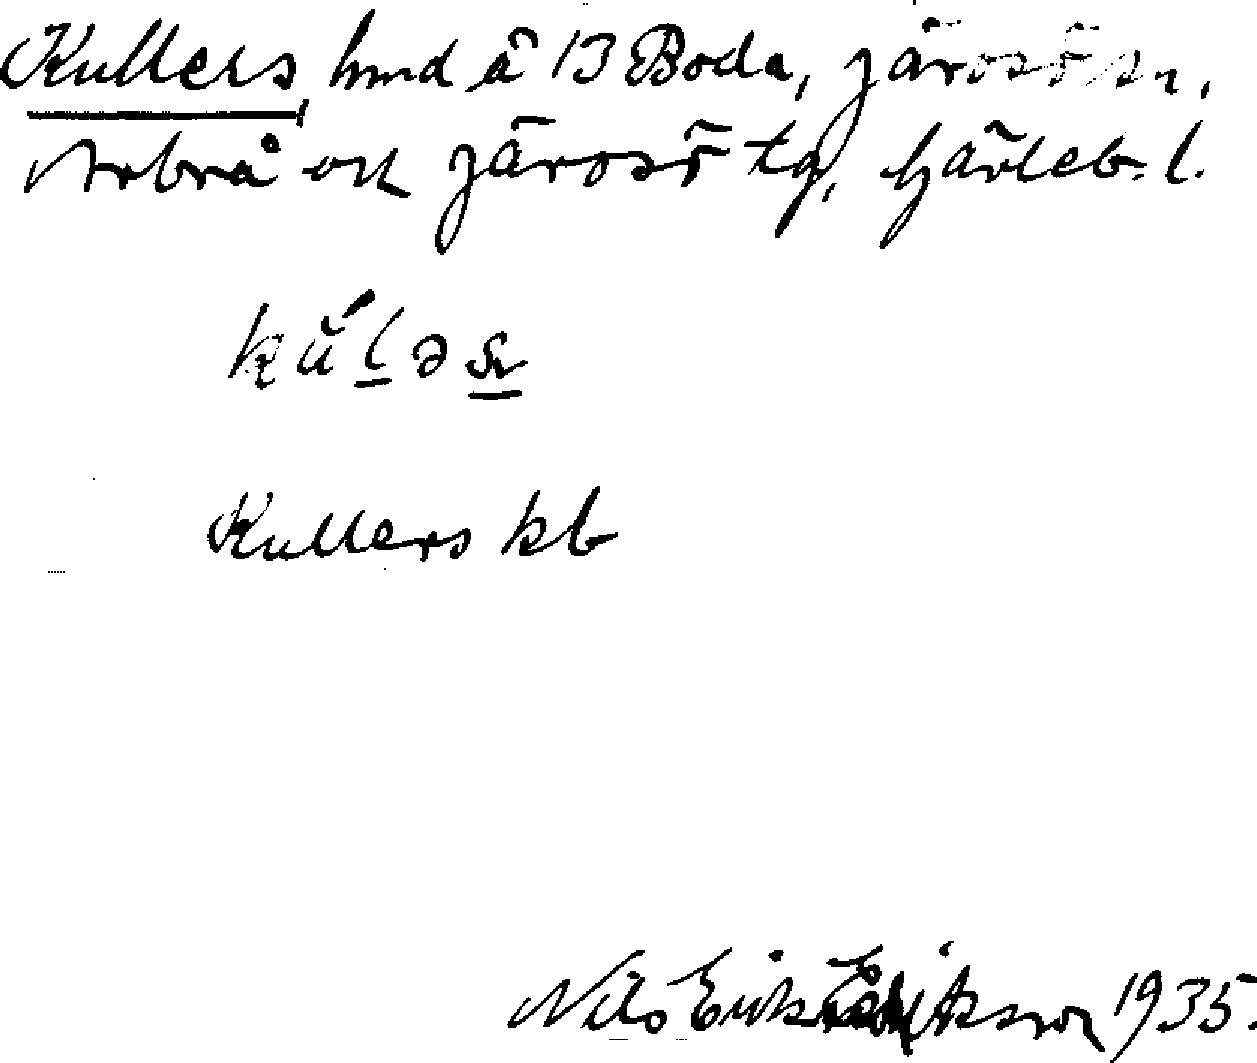 Kullers, hmd å 13 Boda, Järvsö sn,
Arbrå och Järvsö tg, Gävleb. l.
Kullers kb
Nils Eriksson 1935.